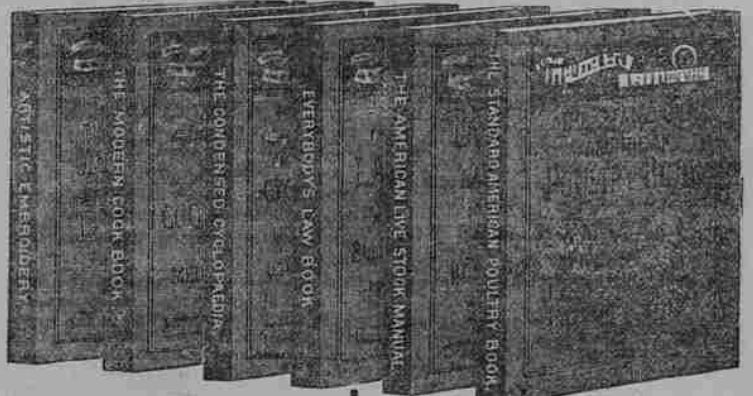 ARTISTIC EMBROIDERY
THE MODERN COOK BOOK
THE CONDENSED CYCLOPAEDIA
EVERYBODY'S LAW BOOK
THE AMERICAN LIVE STOCK MANUAL
THE STANDARD AMERICAN POULTRY BOOK